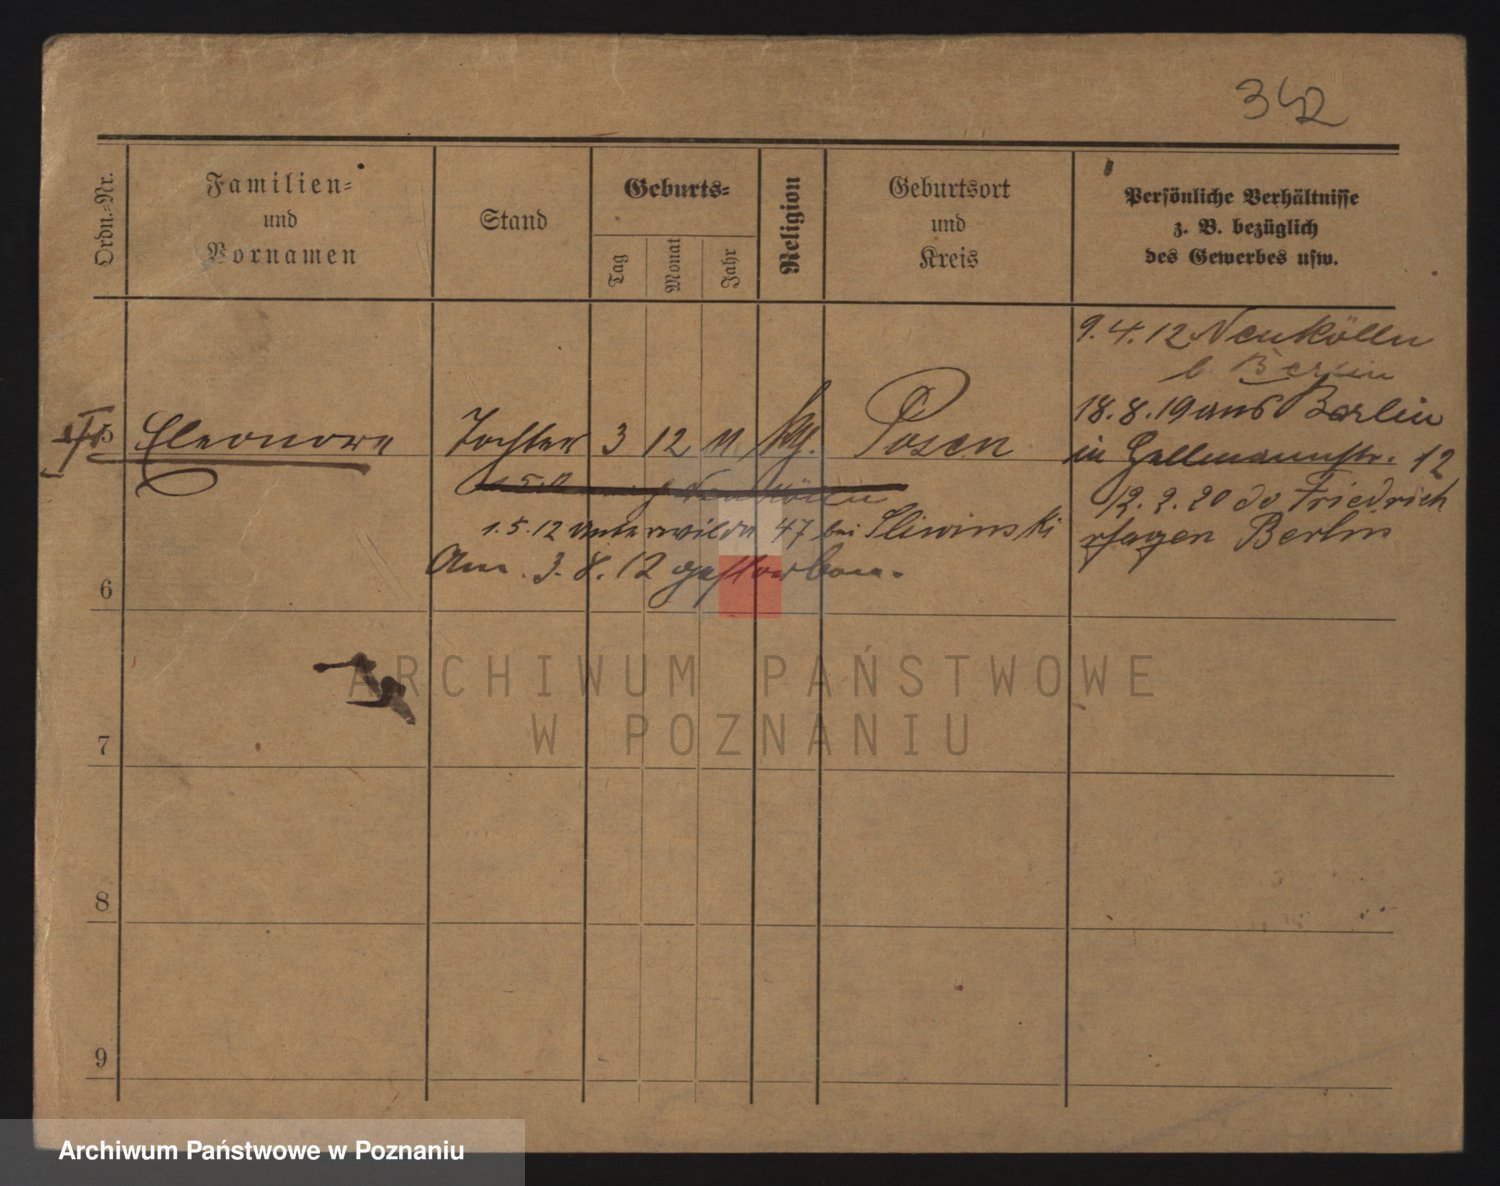 342
Ordn.-Nr.
Familien-
und
Vornamen
Stand
Geburts-
Tag
Monat
Jahr
Religion
Geburtsort
und
Kreis
Persönliche Verhältnisse
z. B. bezüglich
des Gewerbes usw.
9. 4. 12 Neukölln
b. Berlin
18. 8. 19 aus Berlin
5 Eleonore Tochter 3 12 11 Posen
in 12
12. 2. 20 do Friedrich
1. 5. 12 47 bei Sliwinski
Berlin
Am 3. 8. 12 gestorben.
6
ARCHIWUM PAŃSTWOWE
W POZNANIU
7
8
9
Archiwum Państwowe w Poznaniu